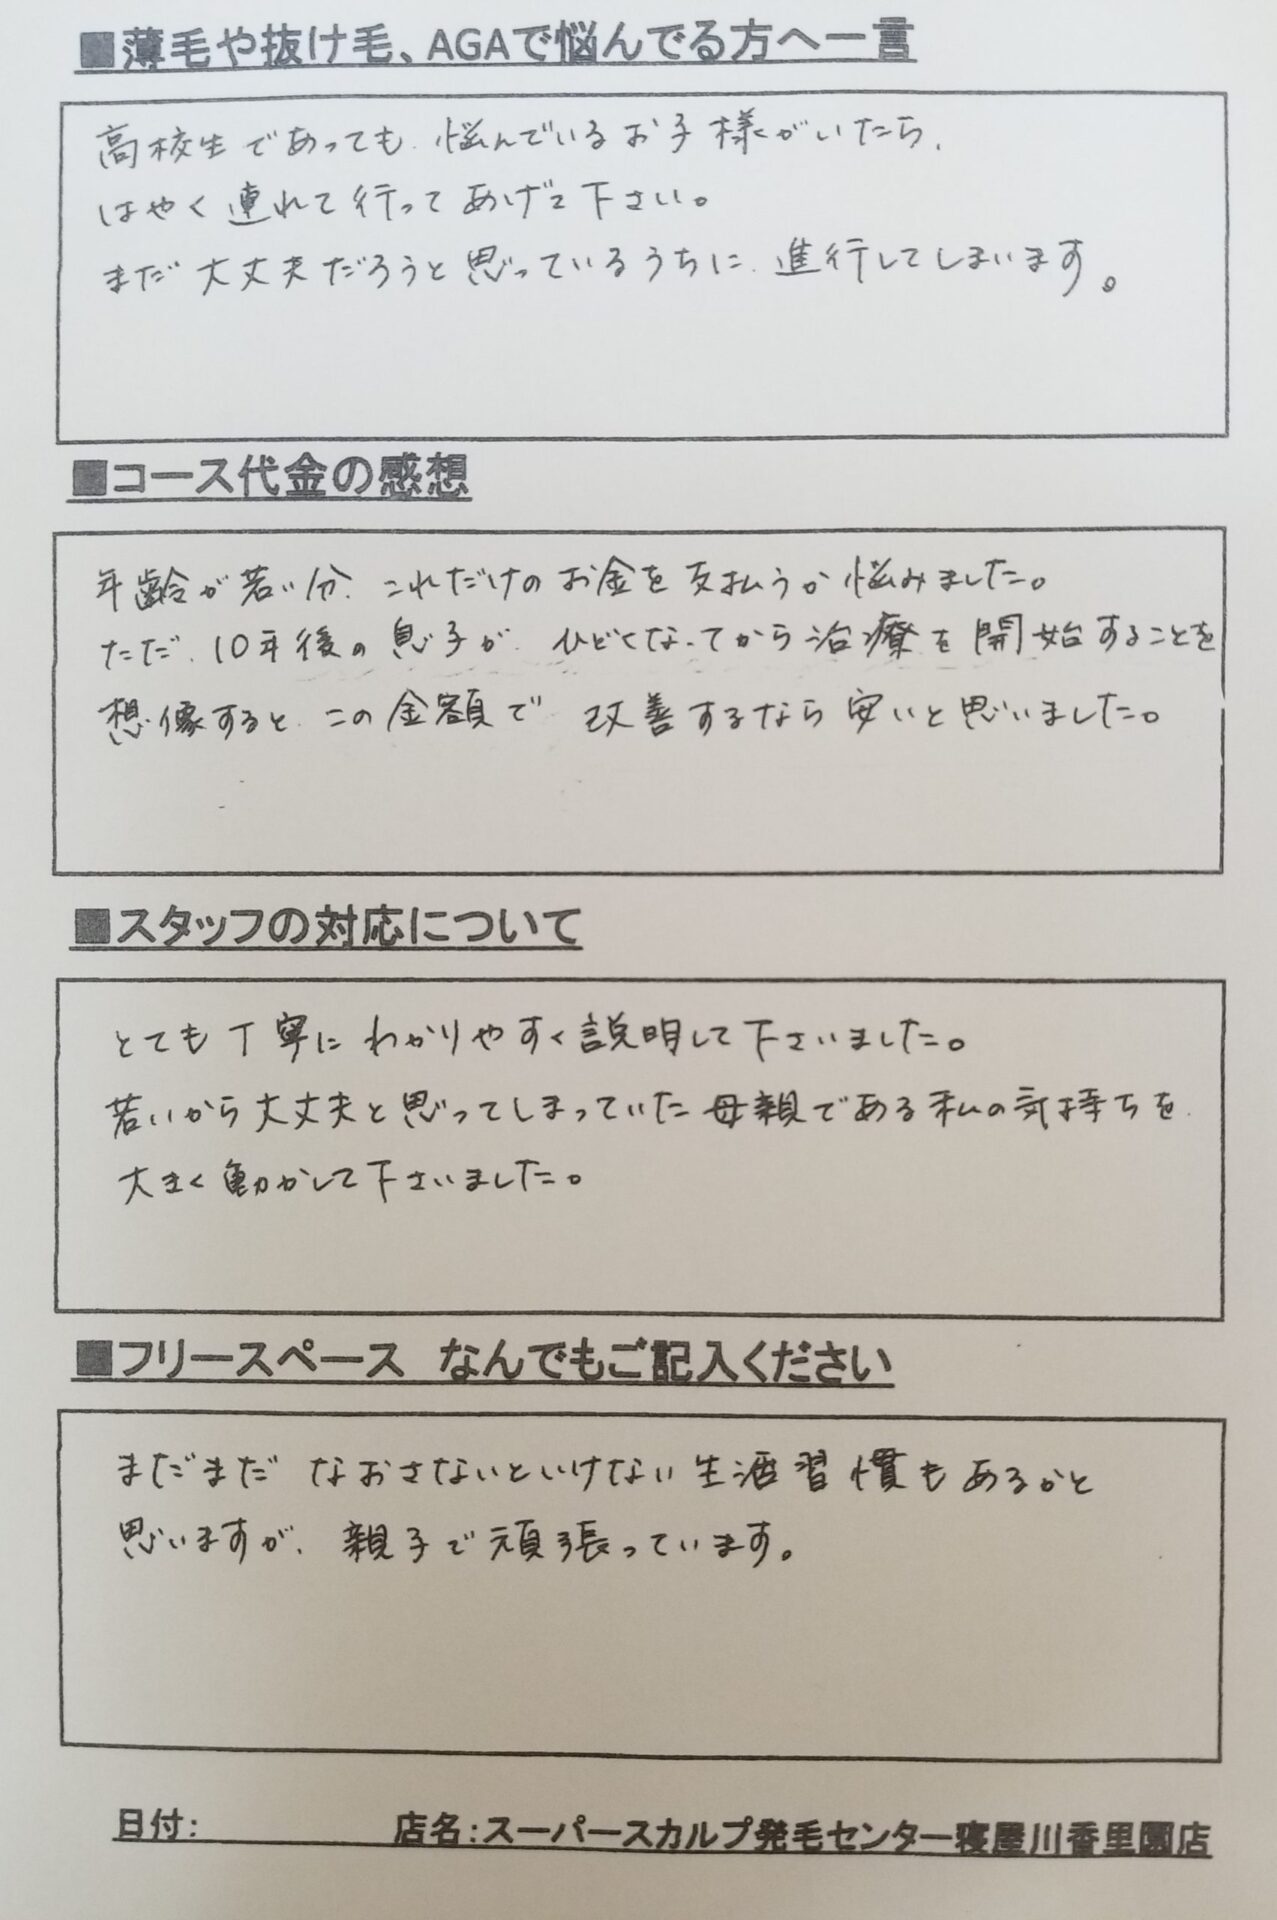 ■薄毛や抜け毛、AGAで悩んでる方へ一言
高校生であっても、悩んでいるお子様がいたら、
はやく連れて行ってあげて下さい。
まだ大丈夫だろうと思っているうちに、進行してしまいます。
■コース代金の感想
年齢が若い分、これだけのお金を支払うか悩みました。
ただ、10年後の息子が、ひどくなってから治療を開始することを
想像すると、この金額で改善するなら安いと思いました。
■スタッフの対応について
とても丁寧にわかりやすく説明して下さいました。
若いから大丈夫と思ってしまっていた母親である私の気持ちを、
大きく動かして下さいました。
■フリースペース なんでもご記入ください
まだまだなおさないといけない生活習慣もあるかと
思いますが、親子で頑張っています。
日付： 店名：スーパースカルプ発毛センター寝屋川香里園店